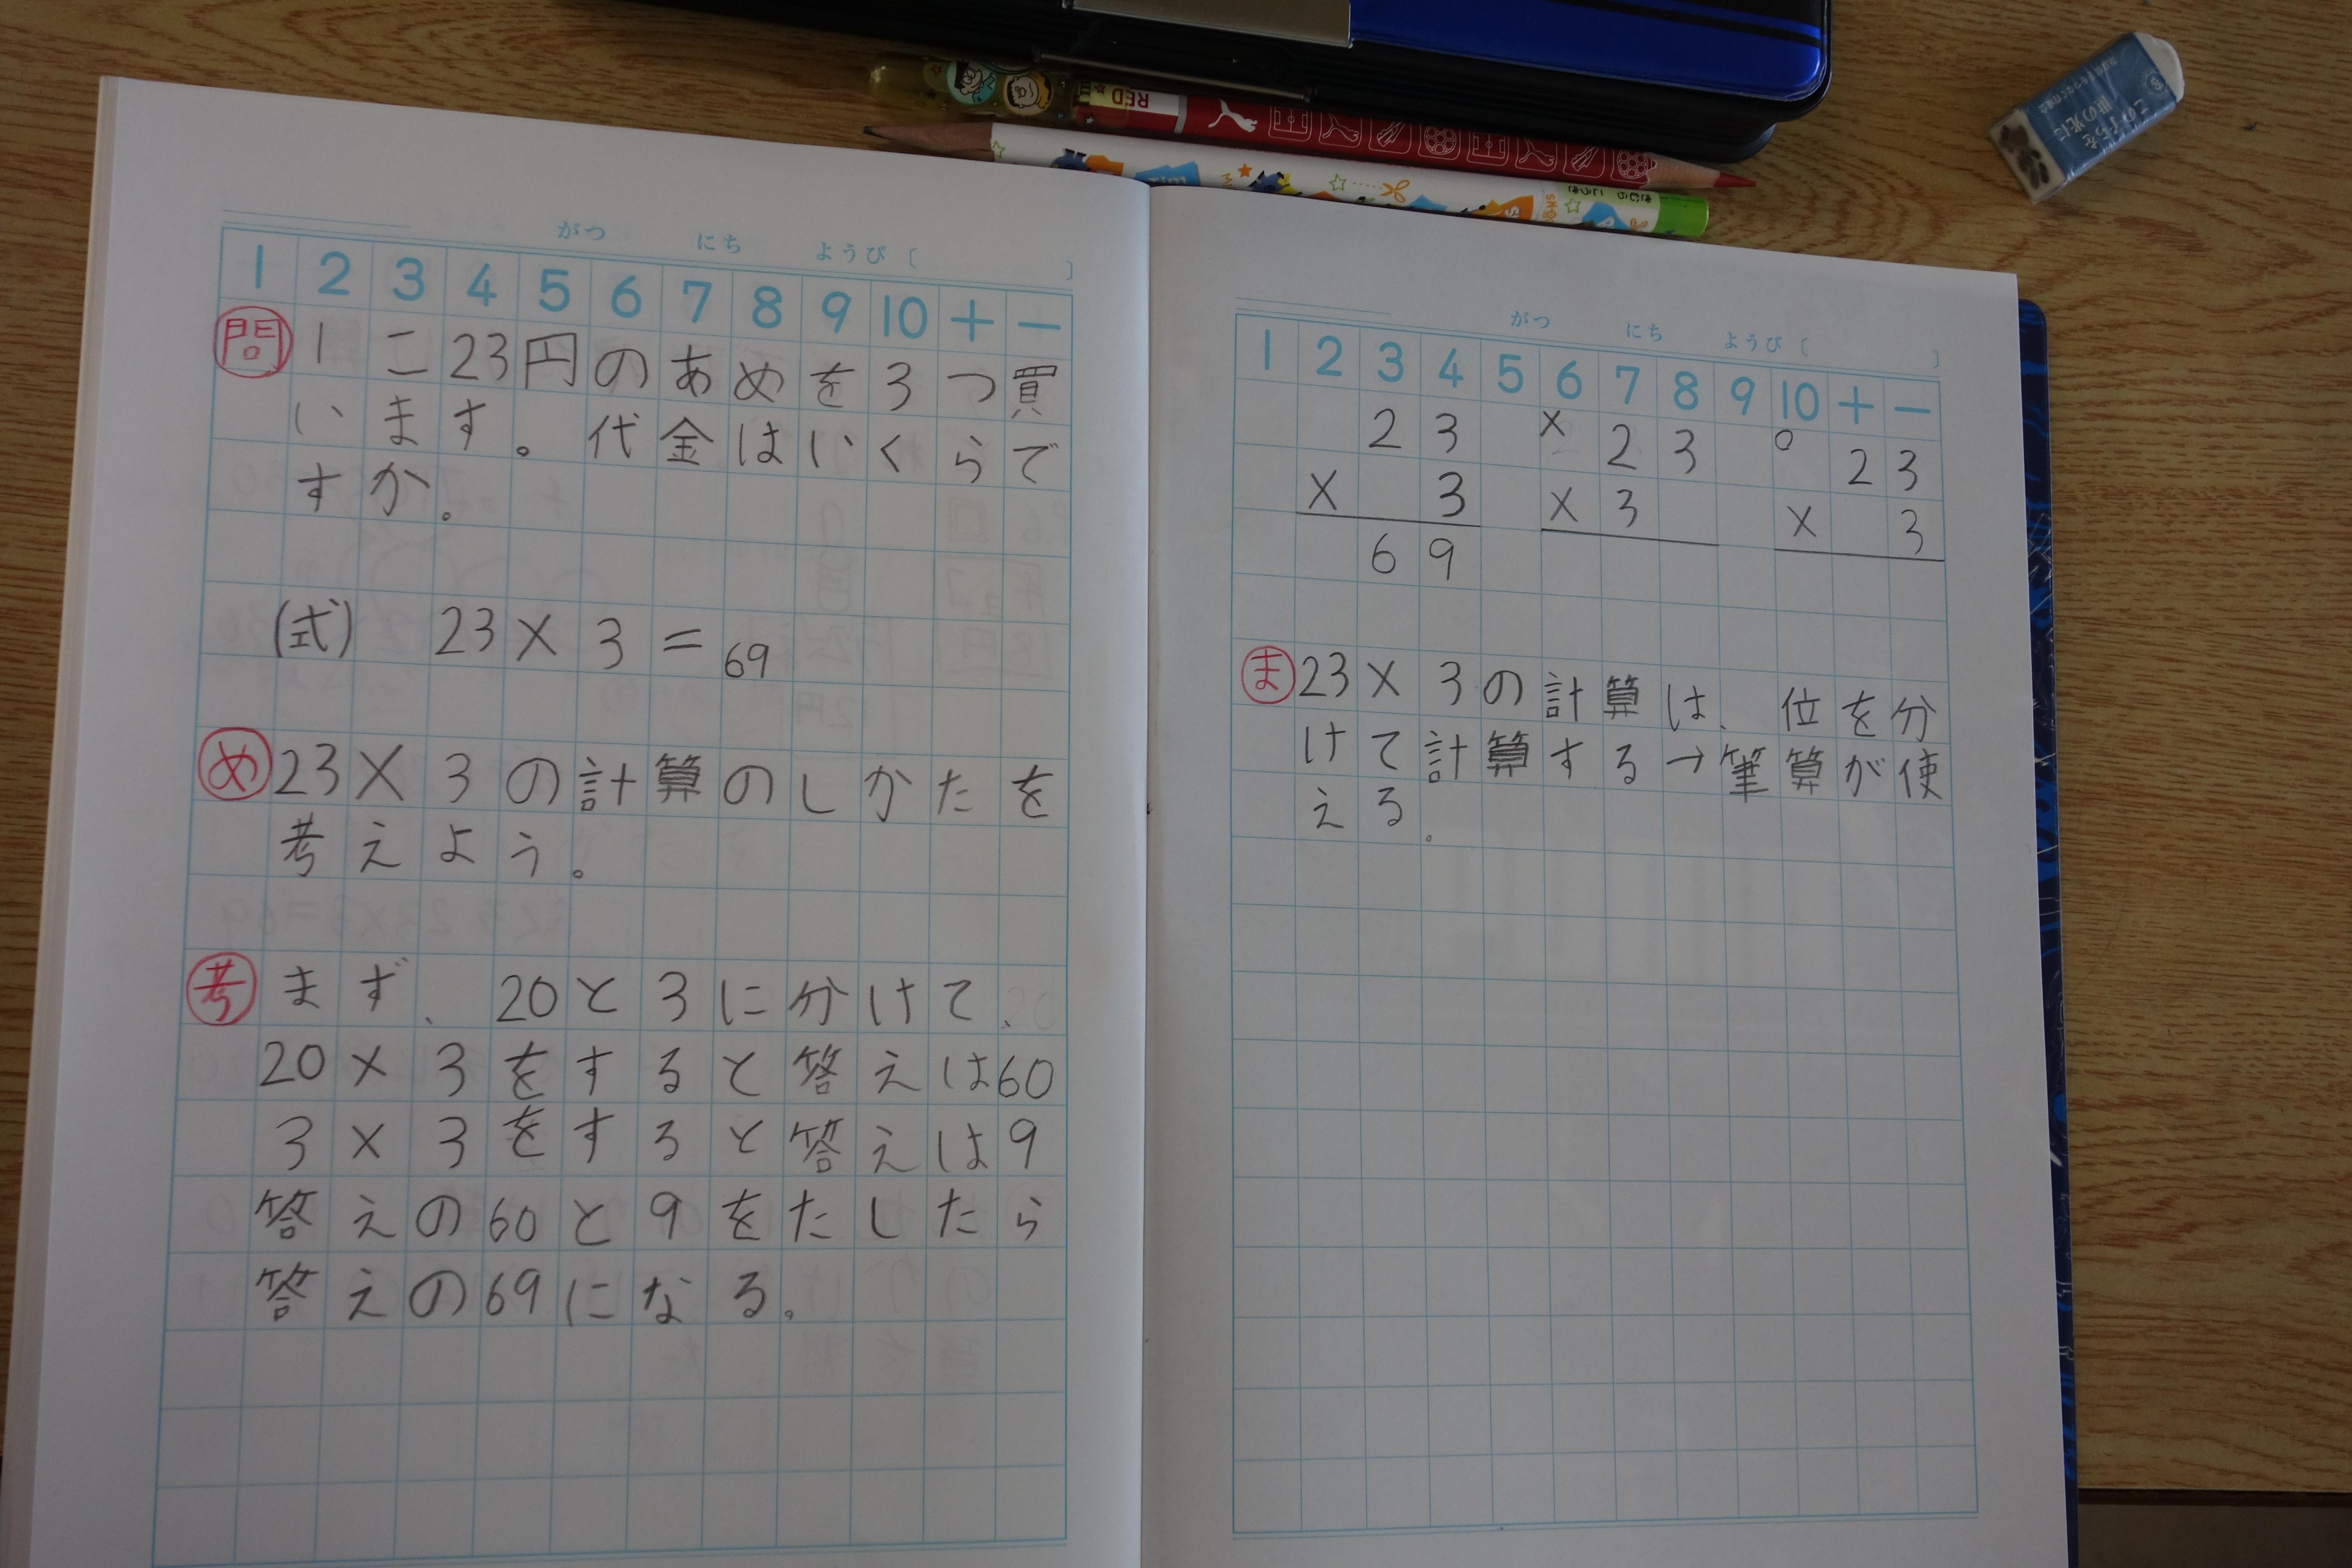 がつ にち ようび〔 〕
1 2 3 4 5 6 7 8 9 10 + −
問 1こ23円のあめを3つ買
います。代金はいくらで
すか。
(式) 23×3=69
め 23×3の計算のしかたを
考えよう。
考 まず、20と3に分けて、
20×3をすると答えは60
3×3をすると答えは9
答えの60と9をたしたら
答えの69になる。
がつ にち ようび〔 〕
1 2 3 4 5 6 7 8 9 10 + −
23 × 23 ○ 23
× 3 × 3 × 3
69
ま 23×3の計算は、位を分
けて計算する→筆算が使
える。
RED